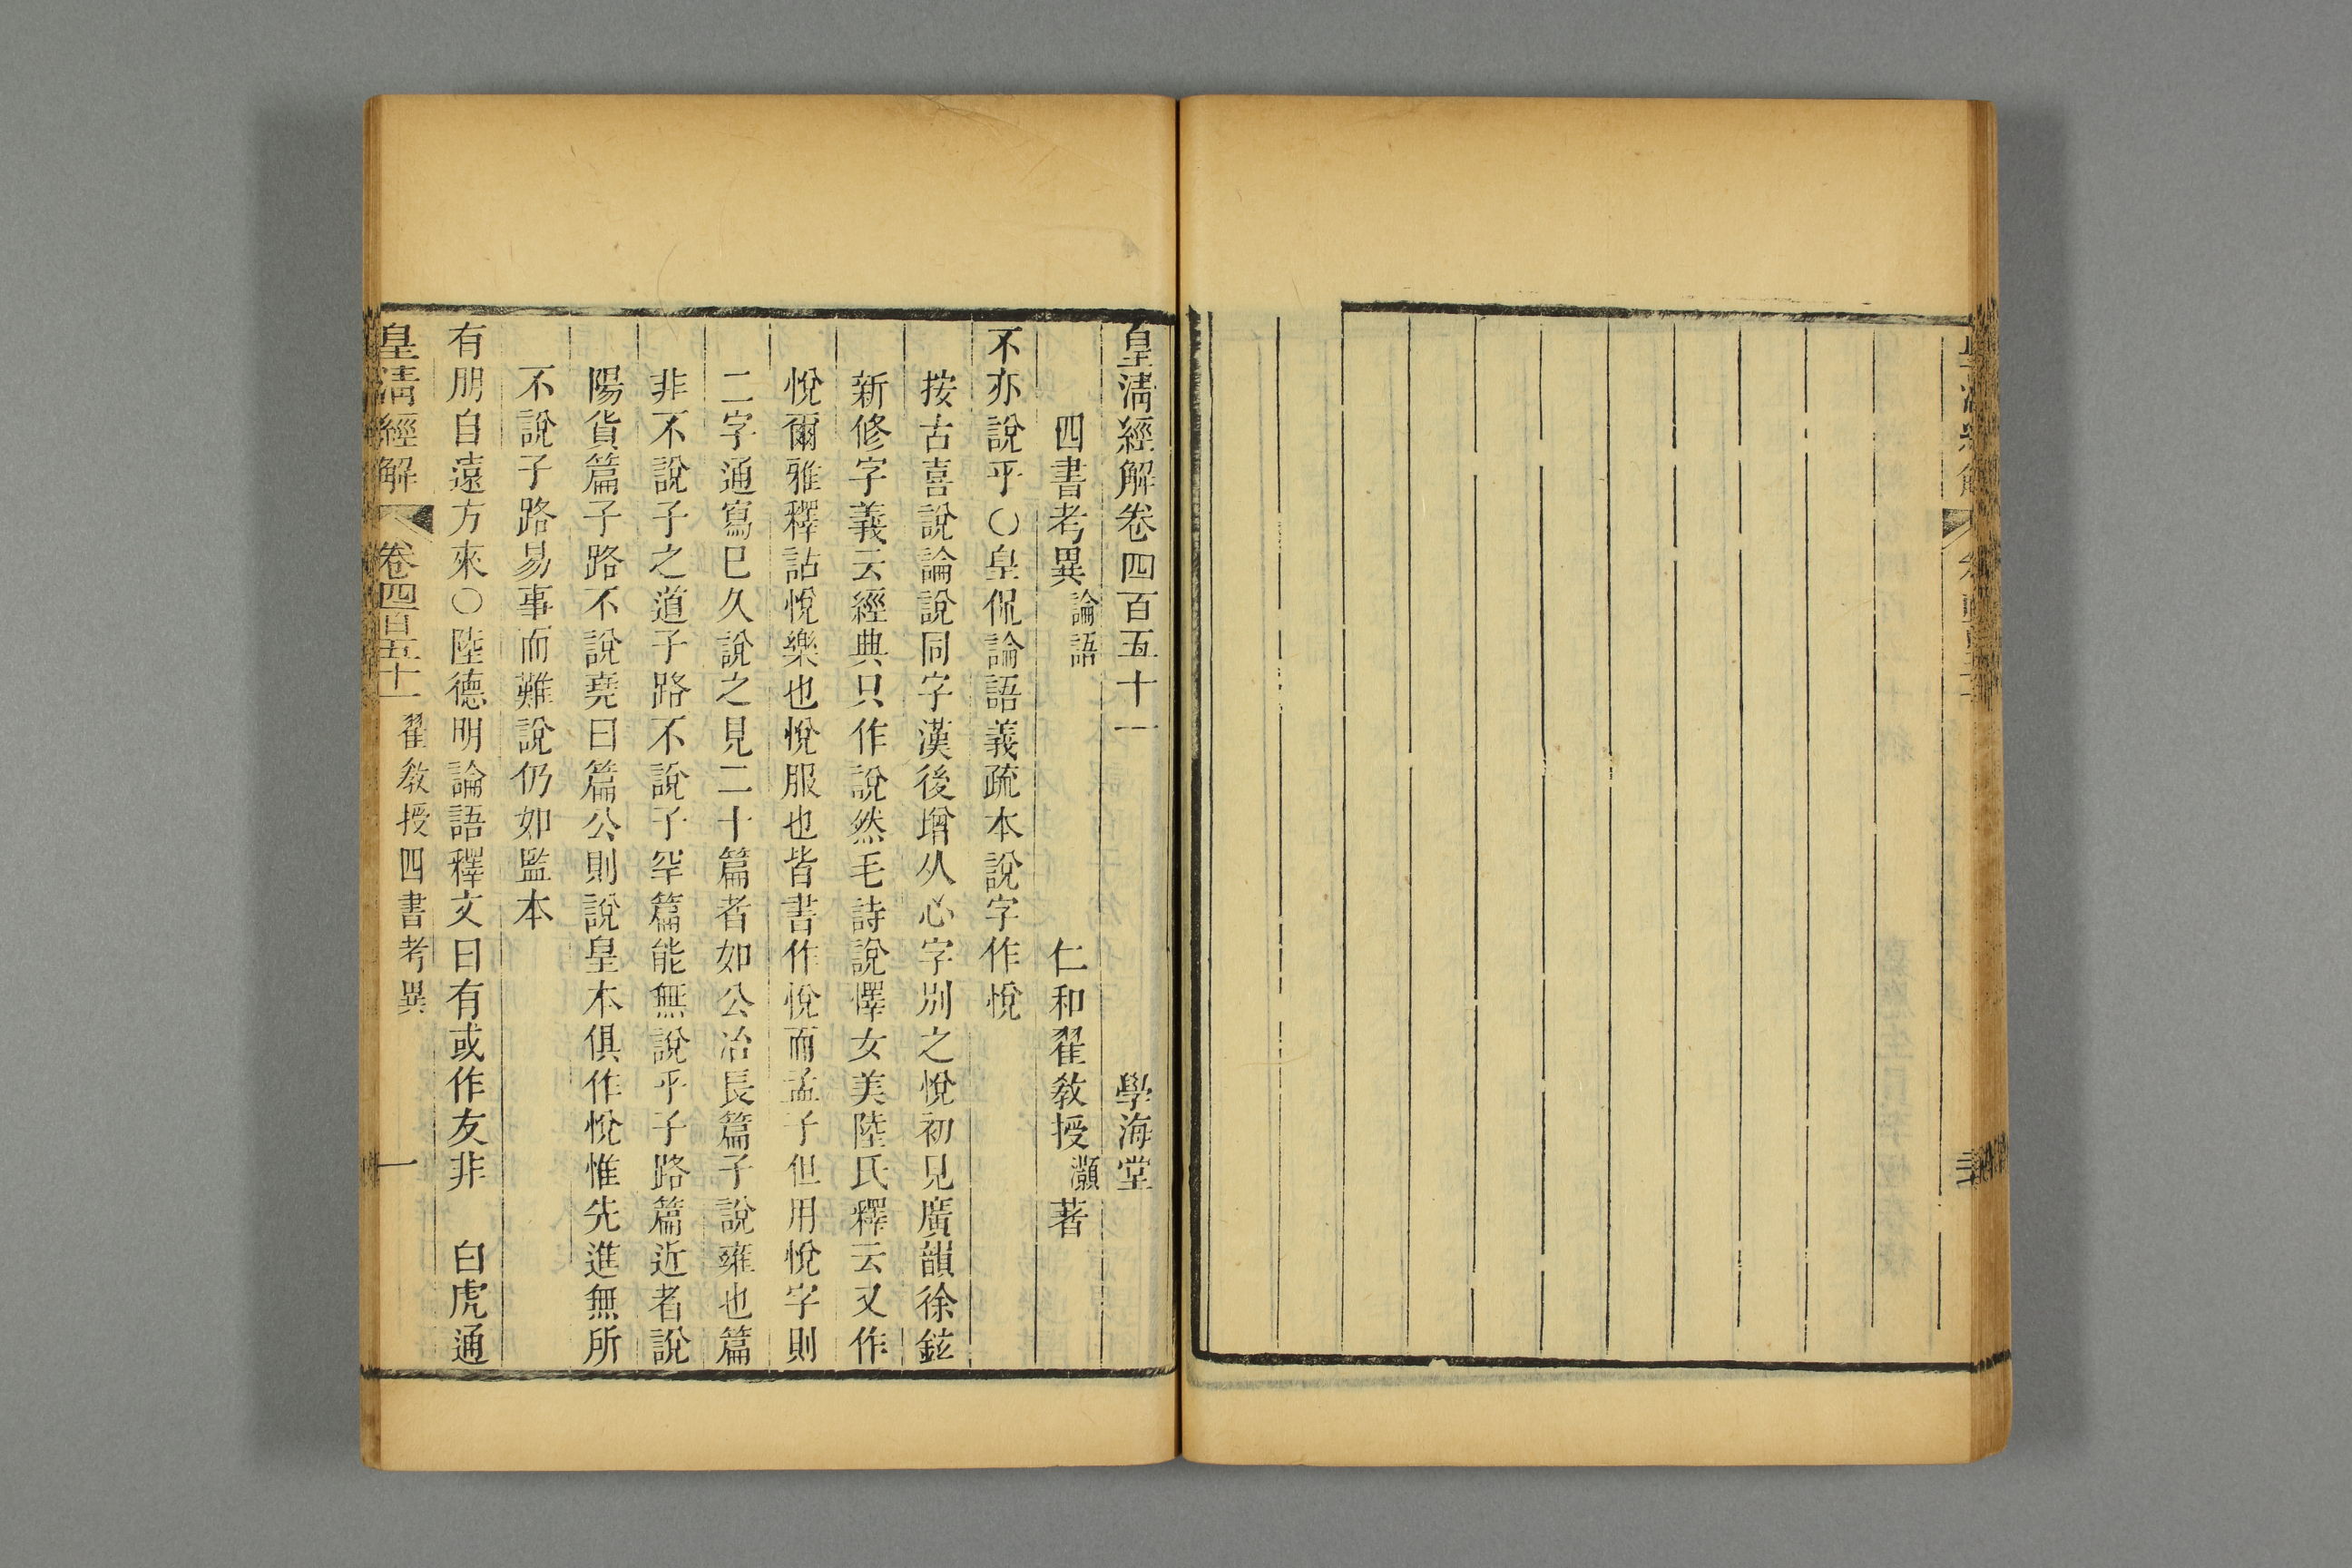 皇清經解卷四百五十一　學海堂
四書考異論語　仁和翟教授灝著
不亦說乎○皇侃論語義疏本說字作悅
按古喜說論說同字漢後增从心字別之悅初見廣韻徐鉉
新修字義云經典只作說然毛詩說懌女美陸氏釋云又作
悅爾雅釋詁悅樂也悅服也皆書作悅而孟子但用悅字則
二字通寫已久說之見二十篇者如公冶長篇子說雍也篇
非不說子之道子路不說子罕篇能無說乎子路篇近者說
陽貨篇子路不說堯曰篇公則說皇本俱作悅惟先進無所
不說子路易事而難說仍如監本
有朋自遠方來○陸德明論語釋文曰有或作友非　白虎通
皇清經解　卷四百五十一　翟教授四書考異　一